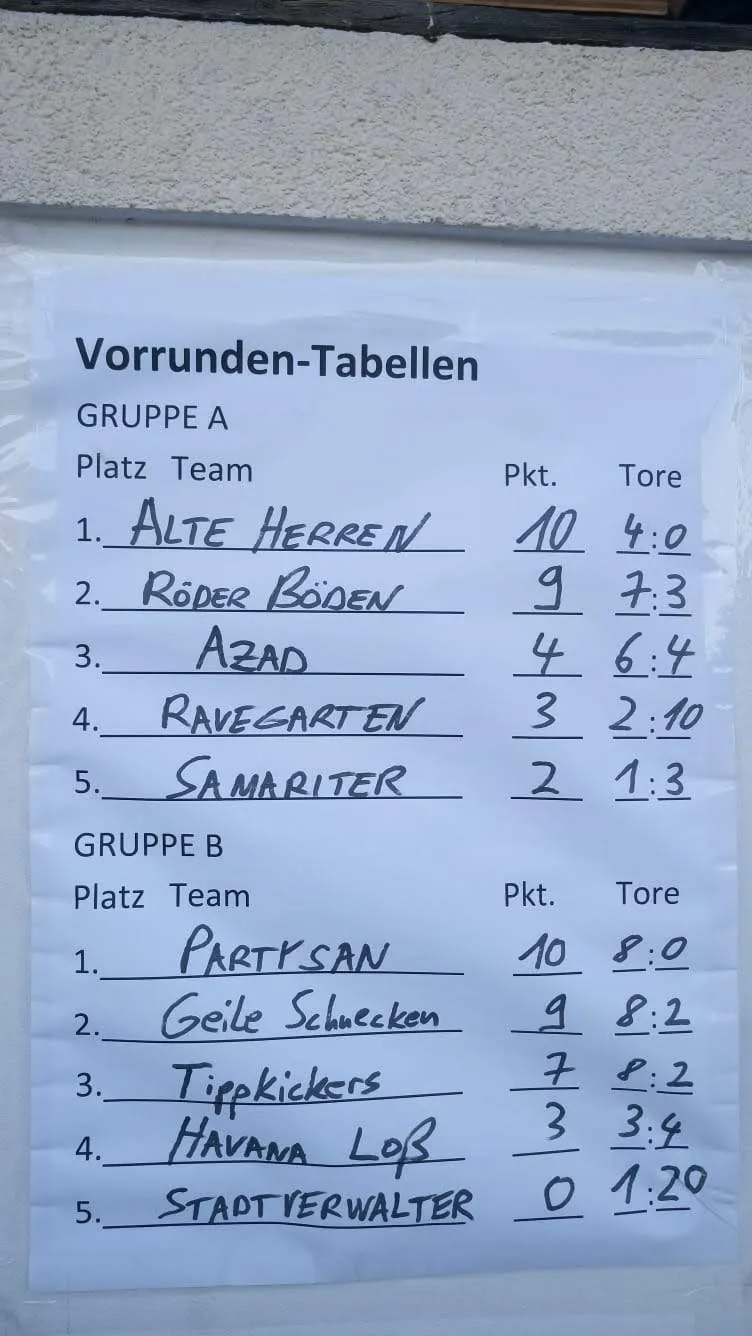 Vorrunden-Tabellen
GRUPPE A
Platz Team Pkt. Tore
1. ALTE HERREN 10 4:0
2. RÖDER BÖDEN 9 7:3
3. AZAD 4 6:4
4. RAVEGARTEN 3 2:10
5. SAMARITER 2 1:3
GRUPPE B
Platz Team Pkt. Tore
1. PARTYSAN 10 8:0
2. Geile Schnecken 9 8:2
3. Tippkickers 7 8:2
4. HAVANA LOß 3 3:4
5. STADTVERWALTER 0 1:20